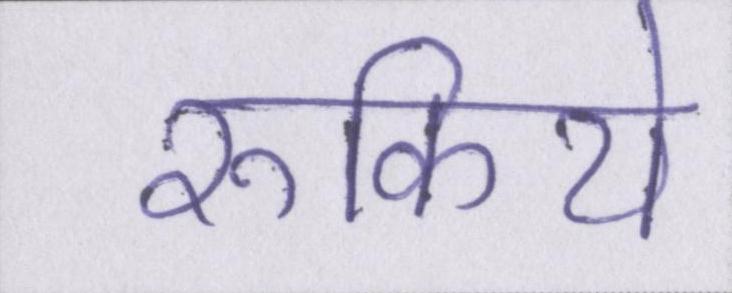 रुकिये